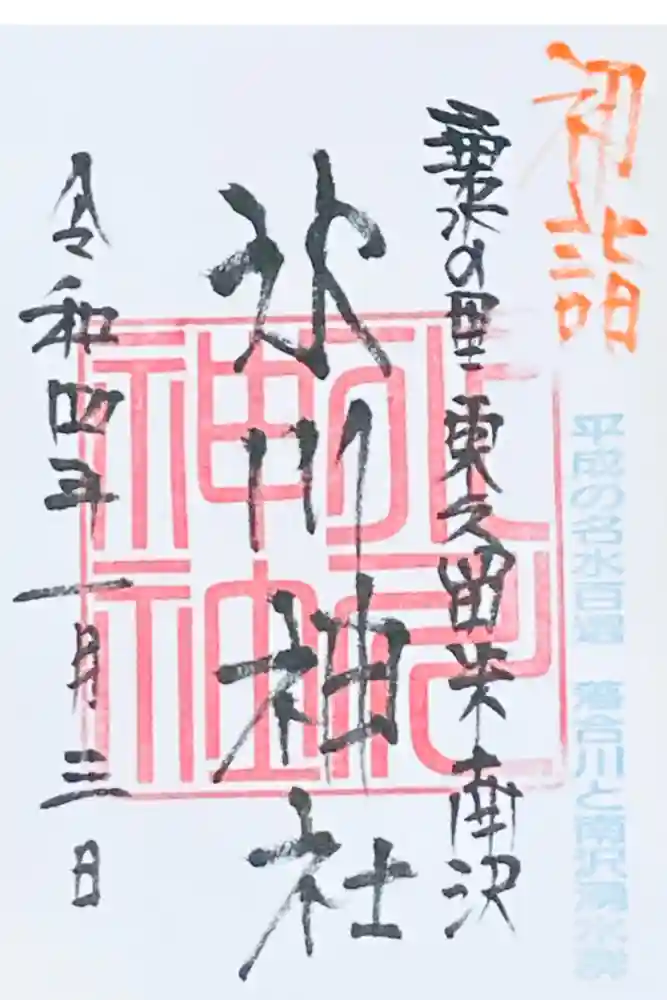 初詣
平成の名水百選 落合川と南沢湧水群
水の里東久留米南沢
氷川神社
令和四年一月三日